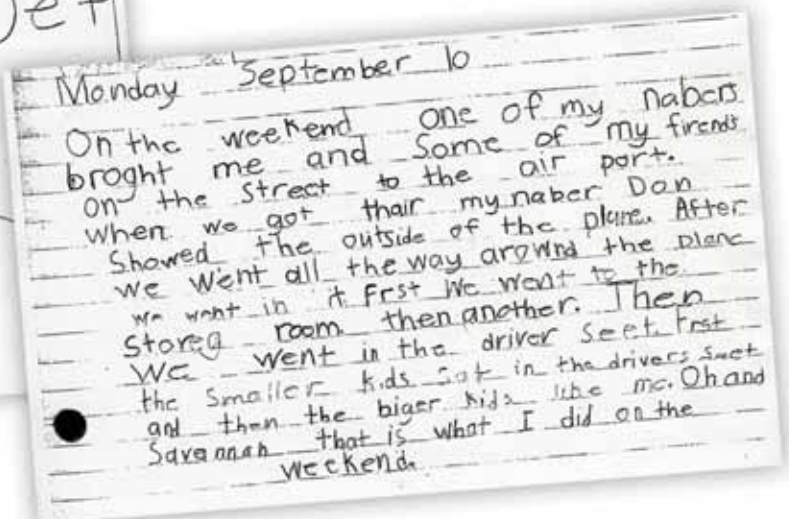 Monday September 10
On the weekend one of my nabers
broght me and some of my firends
on the street to the air port.
when we got thair my naber Dan
Showed the outside of the plane. After
we went all the way arownd the plane
we went in it frst we went to the
storeg room then another. Then
we went in the driver seet. frst
the smaller kids sat in the drivers seet
and then the biger kids like me. Oh and
Savannah that is what I did on the
weekend.